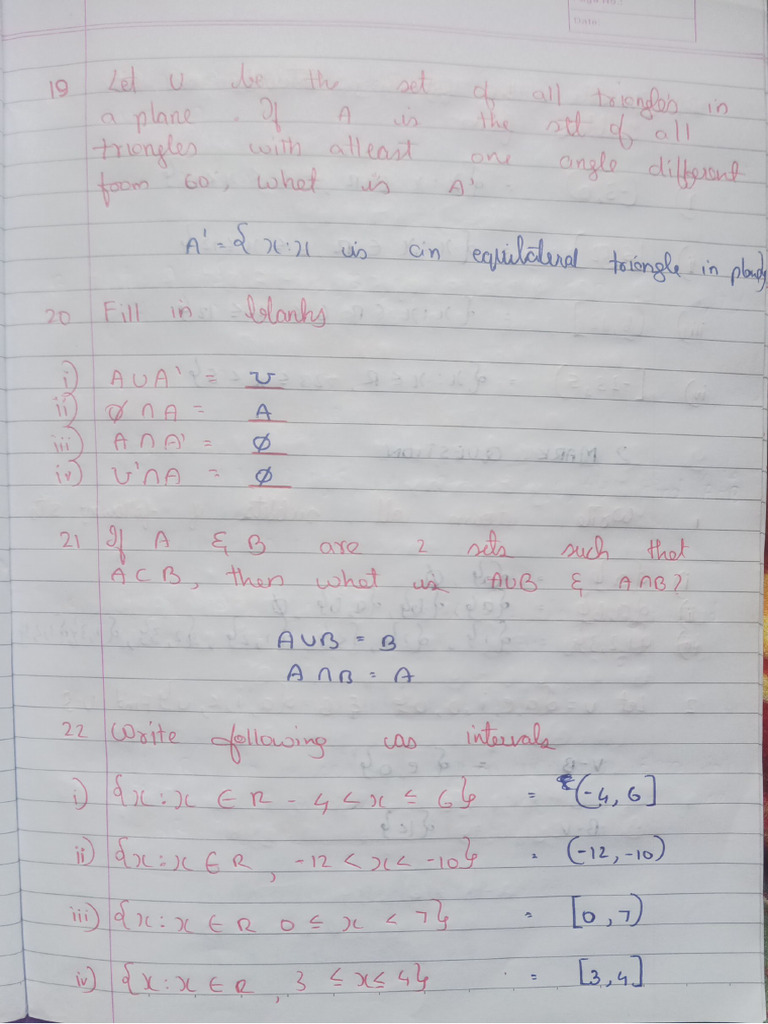 Date:
19 Let U be the set of all triangles in
a plane. If A is the set of all
triangles with atleast one angle different
from 60, what is A'
A' = { x : x is an equilateral triangle in plane}
20 Fill in blanks
i) A ∪ A' = U
ii) ∅ ∩ A = A
iii) A ∩ A' = ∅
iv) U' ∩ A = ∅
21 If A & B are 2 sets such that
A ⊂ B, then what is A∪B & A∩B?
A∪B = B
A∩B = A
22 Write following as intervals
i) {x : x ∈ R - 4 < x ≤ 6} = (-4, 6]
ii) {x : x ∈ R, -12 < x < -10} = (-12, -10)
iii) {x : x ∈ R 0 ≤ x < 7} = [0, 7)
iv) {x : x ∈ R, 3 ≤ x ≤ 4} = [3, 4]